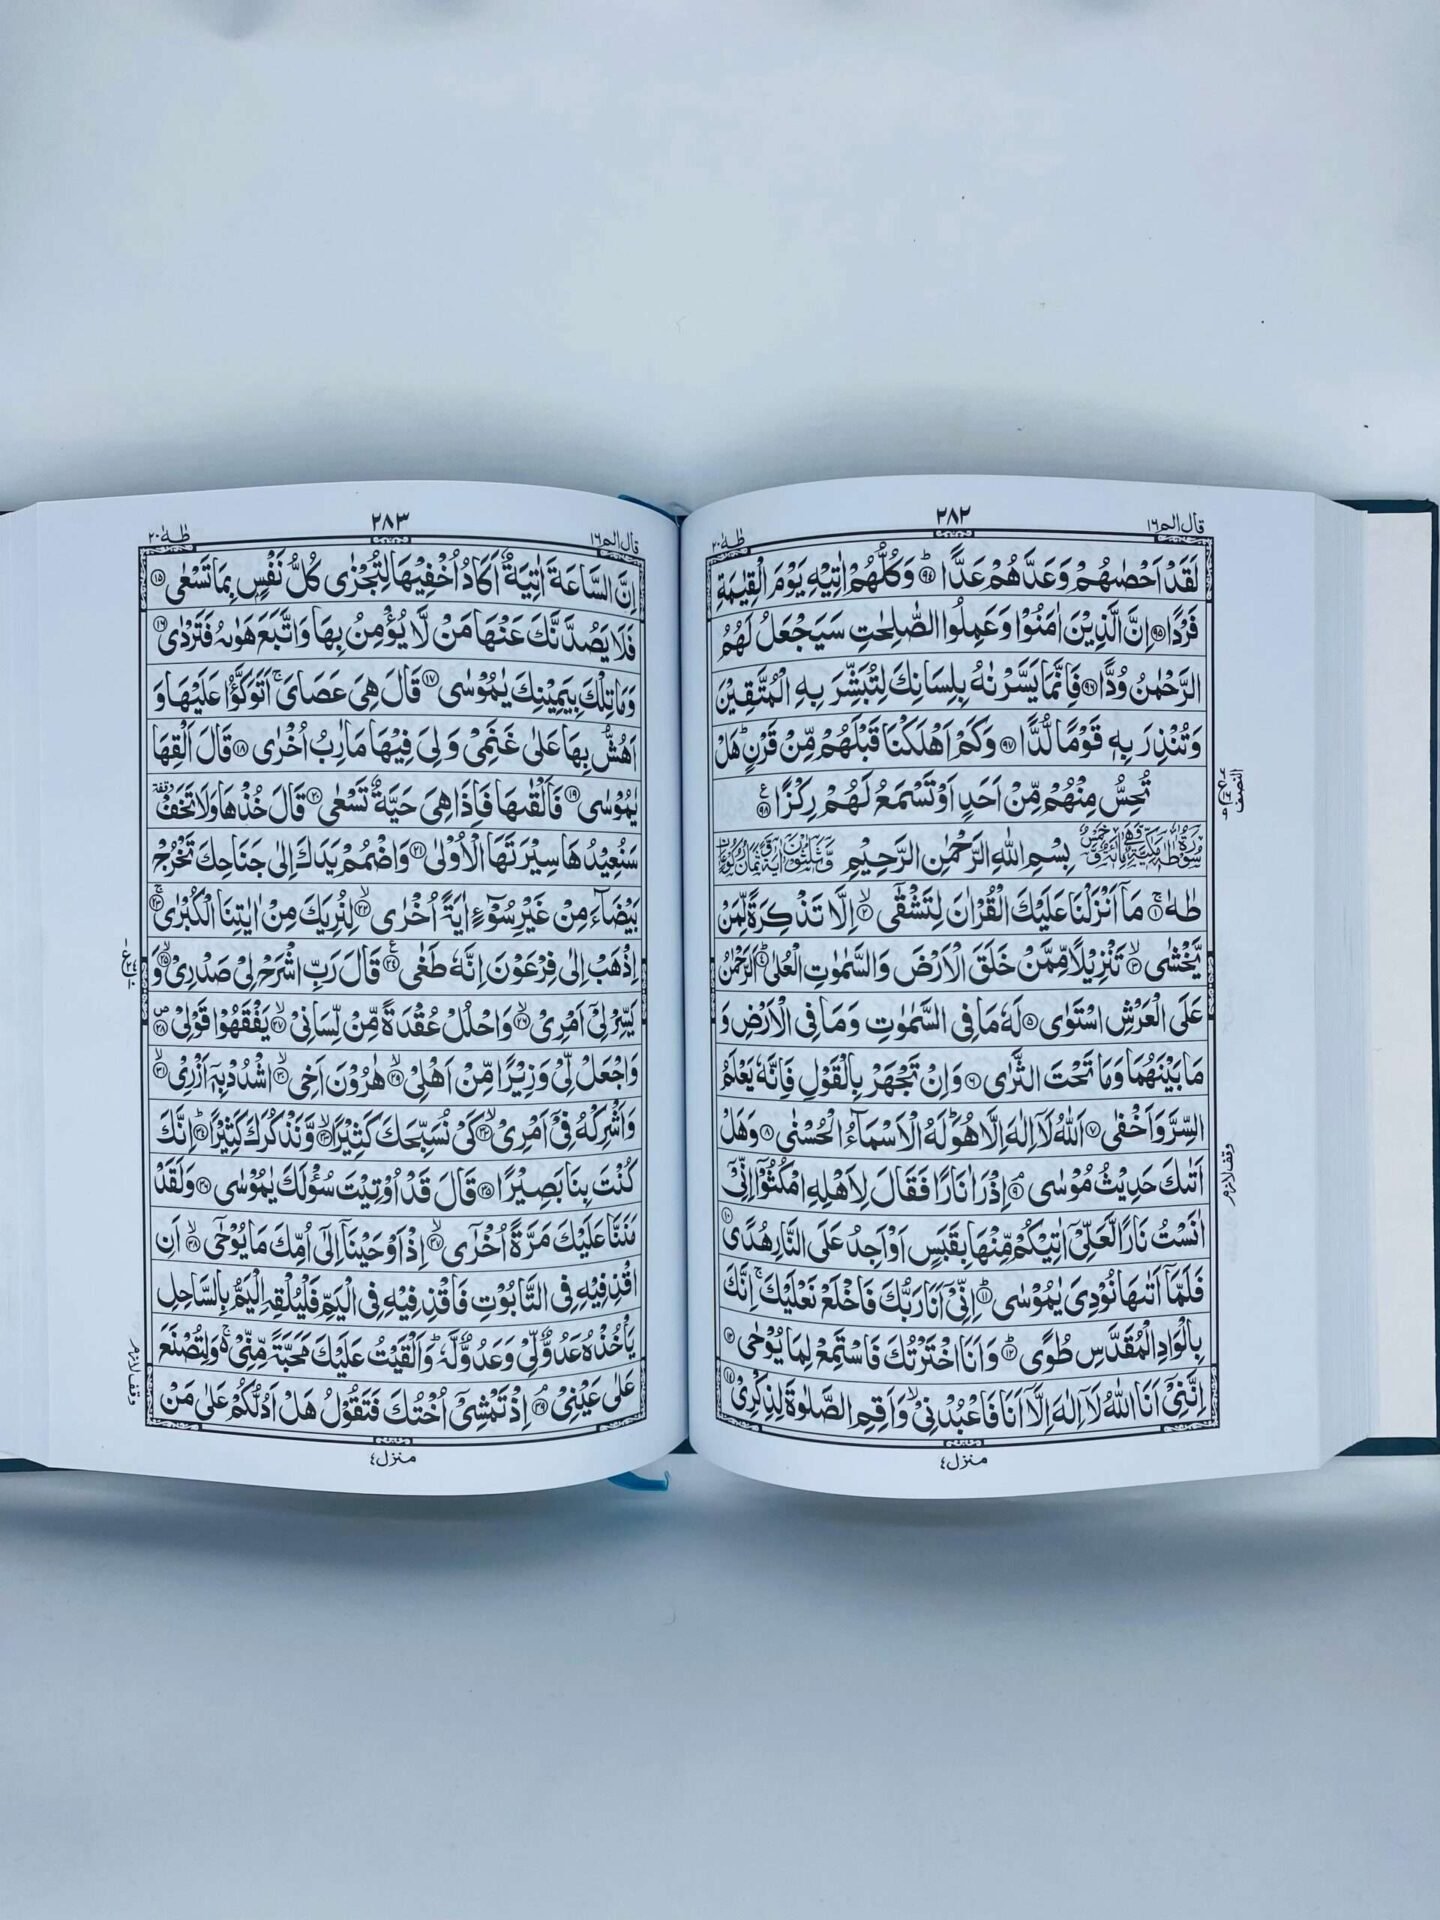 ٢٨٢
قال الم ١٦
طٰهٰ ٢٠
لَقَدْ اَحْصٰىهُمْ وَعَدَّهُمْ عَدًّا ؕ ٩٤ وَكُلُّهُمْ اٰتِيْهِ يَوْمَ الْقِيٰمَةِ
فَرْدًا ٩٥ اِنَّ الَّذِيْنَ اٰمَنُوْا وَعَمِلُوا الصّٰلِحٰتِ سَيَجْعَلُ لَهُمُ
الرَّحْمٰنُ وُدًّا ٩٦ فَاِنَّمَا يَسَّرْنٰهُ بِلِسَانِكَ لِتُبَشِّرَ بِهِ الْمُتَّقِيْنَ
وَتُنْذِرَ بِهٖ قَوْمًا لُّدًّا ٩٧ وَكَمْ اَهْلَكْنَا قَبْلَهُمْ مِّنْ قَرْنٍ ؕ هَلْ
تُحِسُّ مِنْهُمْ مِّنْ اَحَدٍ اَوْ تَسْمَعُ لَهُمْ رِكْزًا ٩٨
النصف
بِسْمِ اللّٰهِ الرَّحْمٰنِ الرَّحِيْمِ
طٰهٰ ۚ ١ مَاۤ اَنْزَلْنَا عَلَيْكَ الْقُرْاٰنَ لِتَشْقٰۤى ۙ ٢ اِلَّا تَذْكِرَةً لِّمَنْ
يَّخْشٰى ۙ ٣ تَنْزِيْلًا مِّمَّنْ خَلَقَ الْاَرْضَ وَالسَّمٰوٰتِ الْعُلٰى ؕ ٤ اَلرَّحْمٰنُ
عَلَى الْعَرْشِ اسْتَوٰى ٥ لَهٗ مَا فِى السَّمٰوٰتِ وَمَا فِى الْاَرْضِ وَ
مَا بَيْنَهُمَا وَمَا تَحْتَ الثَّرٰى ٦ وَاِنْ تَجْهَرْ بِالْقَوْلِ فَاِنَّهٗ يَعْلَمُ
السِّرَّ وَاَخْفٰى ٧ اَللّٰهُ لَاۤ اِلٰهَ اِلَّا هُوَ ؕ لَهُ الْاَسْمَآءُ الْحُسْنٰى ٨ وَهَلْ
اَتٰىكَ حَدِيْثُ مُوْسٰى ۘ ٩ اِذْ رَاٰ نَارًا فَقَالَ لِاَهْلِهِ امْكُثُوْۤا اِنِّيْۤ
وقف لازم
اٰنَسْتُ نَارًا لَّعَلِّيْۤ اٰتِيْكُمْ مِّنْهَا بِقَبَسٍ اَوْ اَجِدُ عَلَى النَّارِ هُدًى ١٠
فَلَمَّاۤ اَتٰىهَا نُوْدِيَ يٰمُوْسٰى ؕ ١١ اِنِّيْۤ اَنَا رَبُّكَ فَاخْلَعْ نَعْلَيْكَ ۚ اِنَّكَ
بِالْوَادِ الْمُقَدَّسِ طُوًى ؕ ١٢ وَاَنَا اخْتَرْتُكَ فَاسْتَمِعْ لِمَا يُوْحٰى ١٣
اِنَّنِيْۤ اَنَا اللّٰهُ لَاۤ اِلٰهَ اِلَّاۤ اَنَا فَاعْبُدْنِيْ ۙ وَاَقِمِ الصَّلٰوةَ لِذِكْرِيْ ١٤
منزل ٤
٢٨٣
قال الم ١٦
طٰهٰ ٢٠
اِنَّ السَّاعَةَ اٰتِيَةٌ اَكَادُ اُخْفِيْهَا لِتُجْزٰى كُلُّ نَفْسٍۭ بِمَا تَسْعٰى ١٥
فَلَا يَصُدَّنَّكَ عَنْهَا مَنْ لَّا يُؤْمِنُ بِهَا وَاتَّبَعَ هَوٰىهُ فَتَرْدٰى ١٦
وَمَا تِلْكَ بِيَمِيْنِكَ يٰمُوْسٰى ١٧ قَالَ هِيَ عَصَايَ ۚ اَتَوَكَّؤُا عَلَيْهَا وَ
اَهُشُّ بِهَا عَلٰى غَنَمِيْ وَلِيَ فِيْهَا مَاٰرِبُ اُخْرٰى ١٨ قَالَ اَلْقِهَا
يٰمُوْسٰى ١٩ فَاَلْقٰىهَا فَاِذَا هِيَ حَيَّةٌ تَسْعٰى ٢٠ قَالَ خُذْهَا وَلَا تَخَفْ وقفة
سَنُعِيْدُهَا سِيْرَتَهَا الْاُوْلٰى ٢١ وَاضْمُمْ يَدَكَ اِلٰى جَنَاحِكَ تَخْرُجْ
بَيْضَآءَ مِنْ غَيْرِ سُوْٓءٍ اٰيَةً اُخْرٰى ۙ ٢٢ لِنُرِيَكَ مِنْ اٰيٰتِنَا الْكُبْرٰى ۚ ٢٣
اِذْهَبْ اِلٰى فِرْعَوْنَ اِنَّهٗ طَغٰى ٢٤ قَالَ رَبِّ اشْرَحْ لِيْ صَدْرِيْ ۙ ٢٥ وَ
يَسِّرْ لِيْۤ اَمْرِيْ ۙ ٢٦ وَاحْلُلْ عُقْدَةً مِّنْ لِّسَانِيْ ۙ ٢٧ يَفْقَهُوْا قَوْلِيْ ٢٨
وَاجْعَلْ لِّيْ وَزِيْرًا مِّنْ اَهْلِيْ ۙ ٢٩ هٰرُوْنَ اَخِى ۙ ٣٠ اشْدُدْ بِهٖۤ اَزْرِيْ ۙ ٣١
وَاَشْرِكْهُ فِيْۤ اَمْرِيْ ۙ ٣٢ كَيْ نُسَبِّحَكَ كَثِيْرًا ۙ ٣٣ وَّنَذْكُرَكَ كَثِيْرًا ؕ ٣٤ اِنَّكَ
كُنْتَ بِنَا بَصِيْرًا ٣٥ قَالَ قَدْ اُوْتِيْتَ سُؤْلَكَ يٰمُوْسٰى ٣٦ وَلَقَدْ
مَنَنَّا عَلَيْكَ مَرَّةً اُخْرٰۤى ۙ ٣٧ اِذْ اَوْحَيْنَاۤ اِلٰۤى اُمِّكَ مَا يُوْحٰۤى ۙ ٣٨ اَنِ
اقْذِفِيْهِ فِى التَّابُوْتِ فَاقْذِفِيْهِ فِى الْيَمِّ فَلْيُلْقِهِ الْيَمُّ بِالسَّاحِلِ
يَاْخُذْهُ عَدُوٌّ لِّيْ وَعَدُوٌّ لَّهٗ ؕ وَاَلْقَيْتُ عَلَيْكَ مَحَبَّةً مِّنِّيْ ۚ وَلِتُصْنَعَ
وقف لازم
عَلٰى عَيْنِيْ ۘ ٣٩ اِذْ تَمْشِيْۤ اُخْتُكَ فَتَقُوْلُ هَلْ اَدُلُّكُمْ عَلٰى مَنْ
منزل ٤